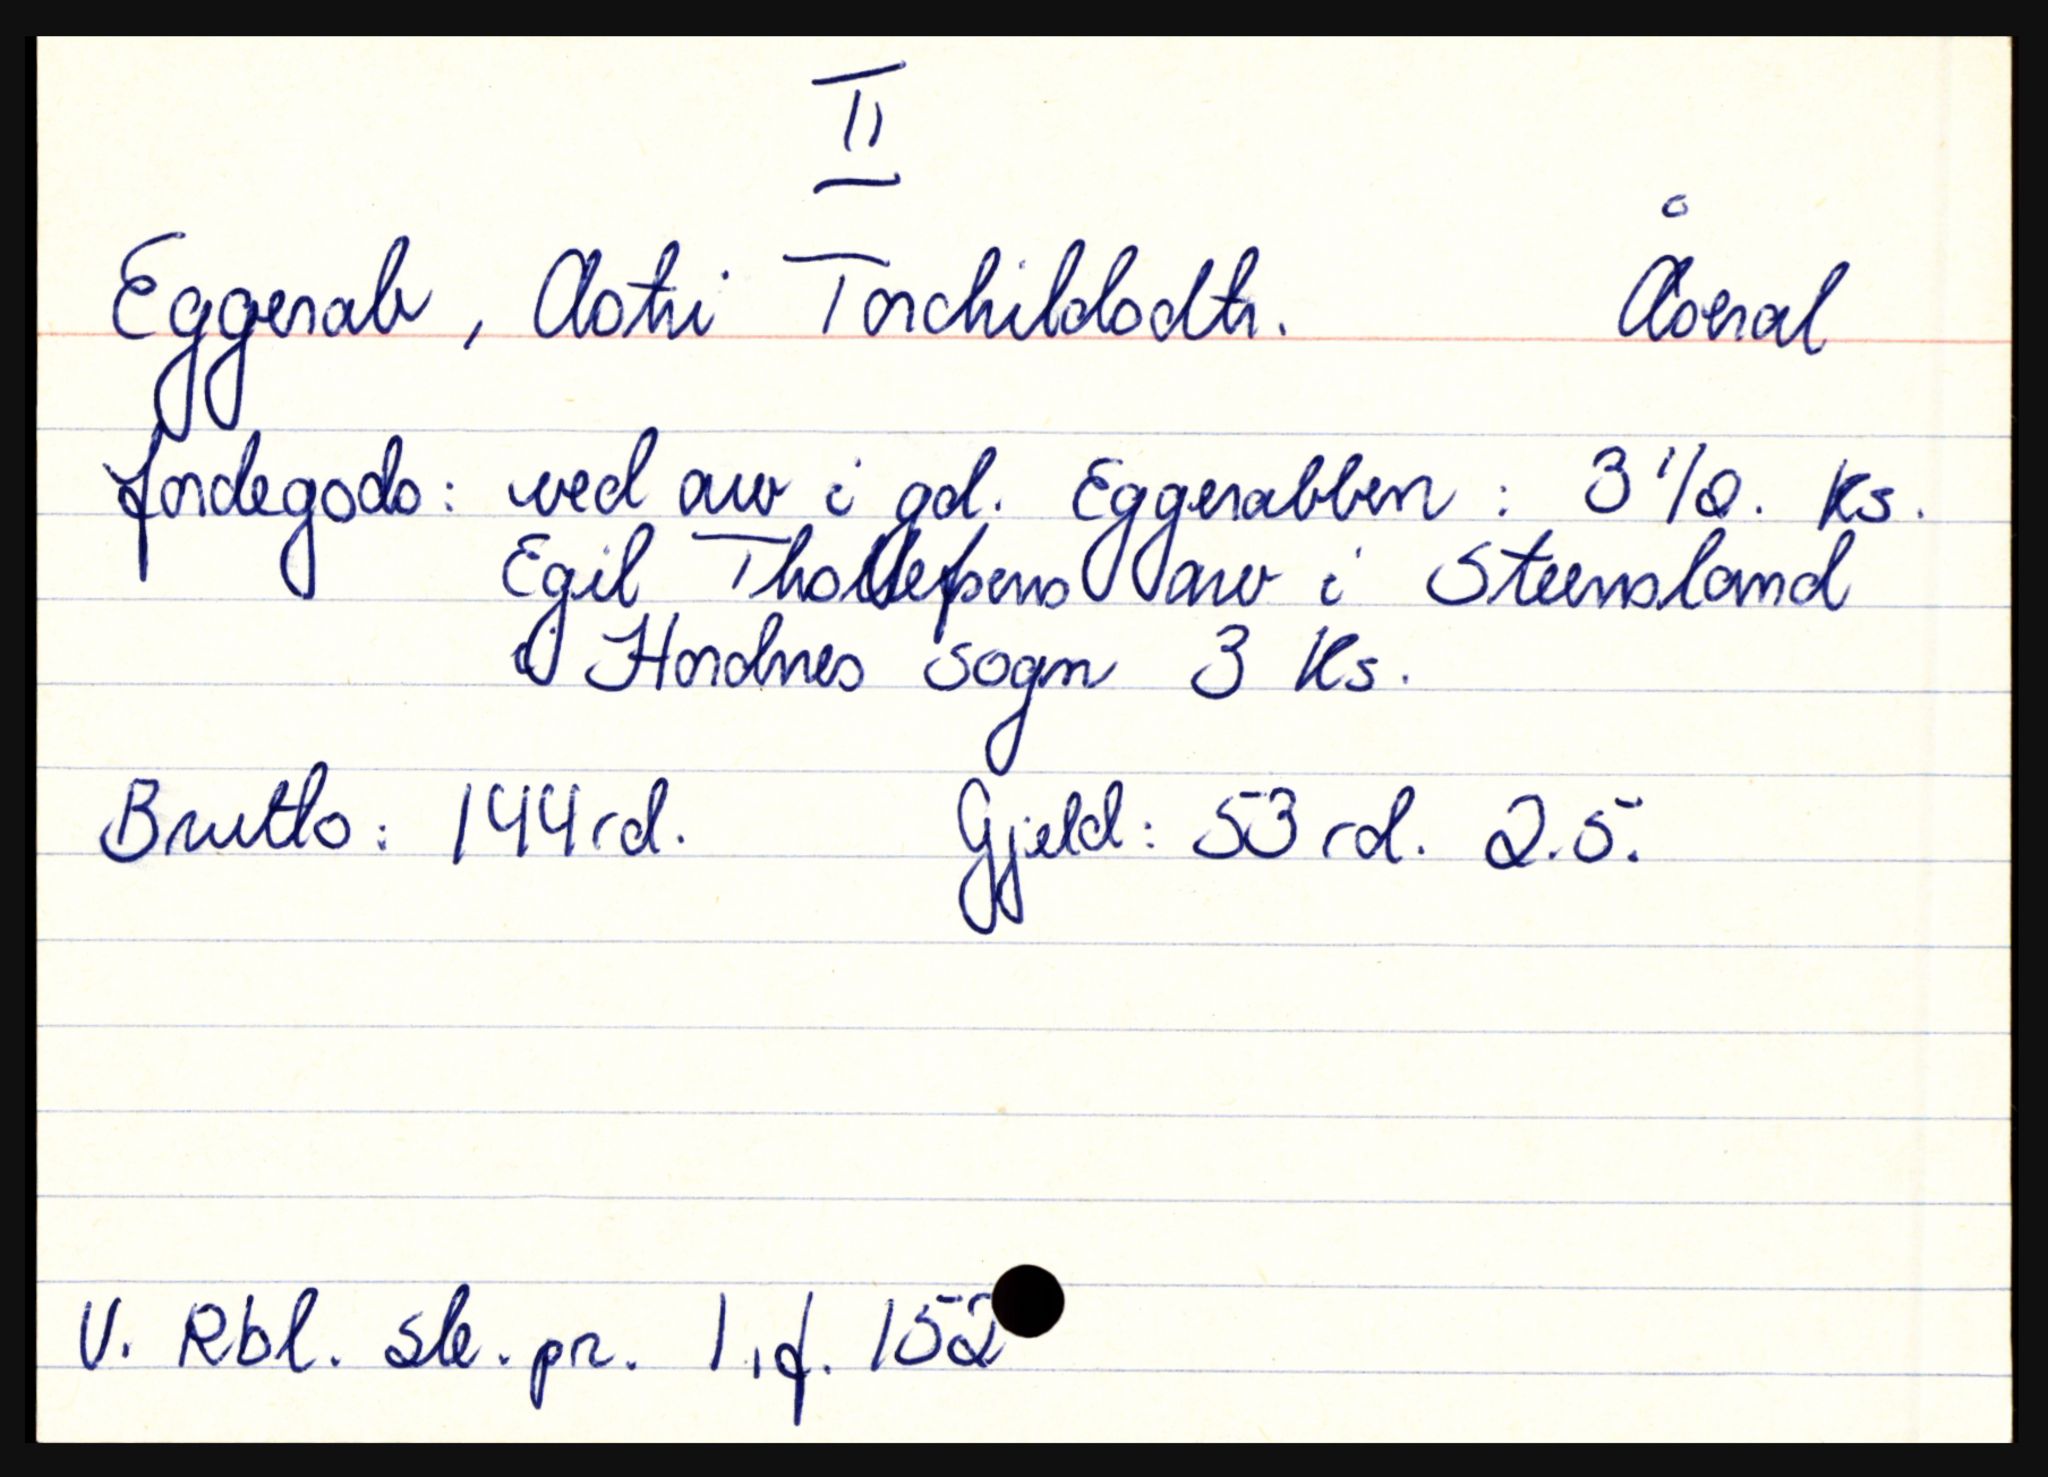 II
Eggerab, Astri Torchildsdtr. Åseral
Jordegods: ved arv i gd. Eggerabben: 3 1/2. Ks.
Egil Thollefsens arv i Steensland
i Hordnes sogn 3 Ks.
Brutto: 144 rd. Gjeld: 53 rd. 2.5.
V. Rbl. sk. pr. 1, f. 152